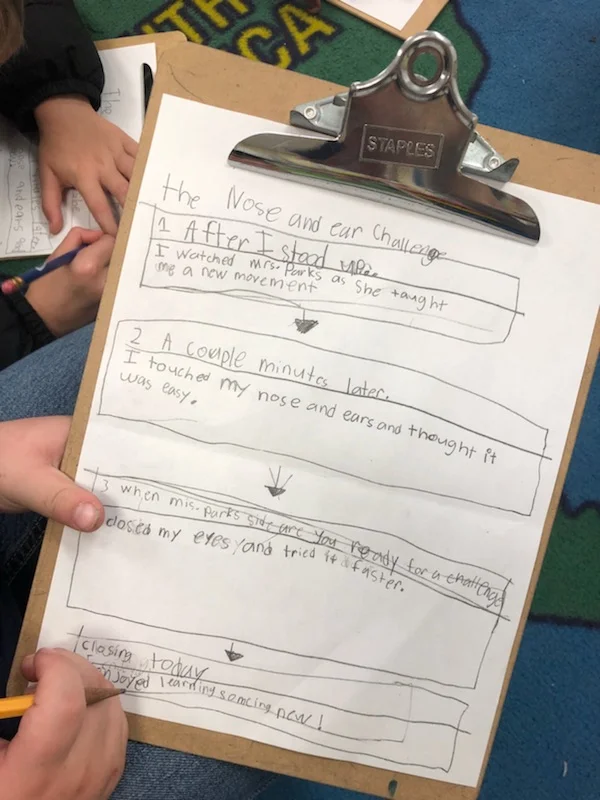 STAPLES
the Nose and ear Challenge
1 After I stood up.
I watched mrs. Parks as she taught
me a new movement
2 A couple minutes later.
I touched my nose and ears and thought it
was easy.
3 when mis. Parks side are you ready for a challenge
closed my eyes and tried it faster.
closing today
enjoyed learning somcing new!